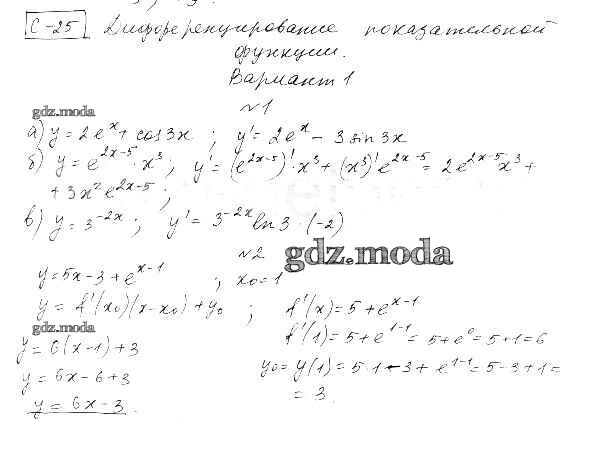 С-25 Дифференцирование показательной
функции.
Вариант 1
№1
gdz.moda
а) y = 2e^x + cos3x ; y' = 2e^x - 3 sin 3x
б) y = e^{2x-5} · x^3 ; y' = (e^{2x-5})' · x^3 + (x^3)' e^{2x-5} = 2e^{2x-5} x^3 +
+ 3x^2 e^{2x-5} ;
в) y = 3^{-2x} ; y' = 3^{-2x} ln 3 · (-2)
№2
gdz.moda
y = 5x - 3 + e^{x-1} ; x0 = 1
y = f'(x0)(x - x0) + y0 ; f'(x) = 5 + e^{x-1}
gdz.moda
f'(1) = 5 + e^{1-1} = 5 + e^0 = 5 + 1 = 6
y = 6(x - 1) + 3
y0 = y(1) = 5 · 1 - 3 + e^{1-1} = 5 - 3 + 1 =
y = 6x - 6 + 3
= 3.
y = 6x - 3.